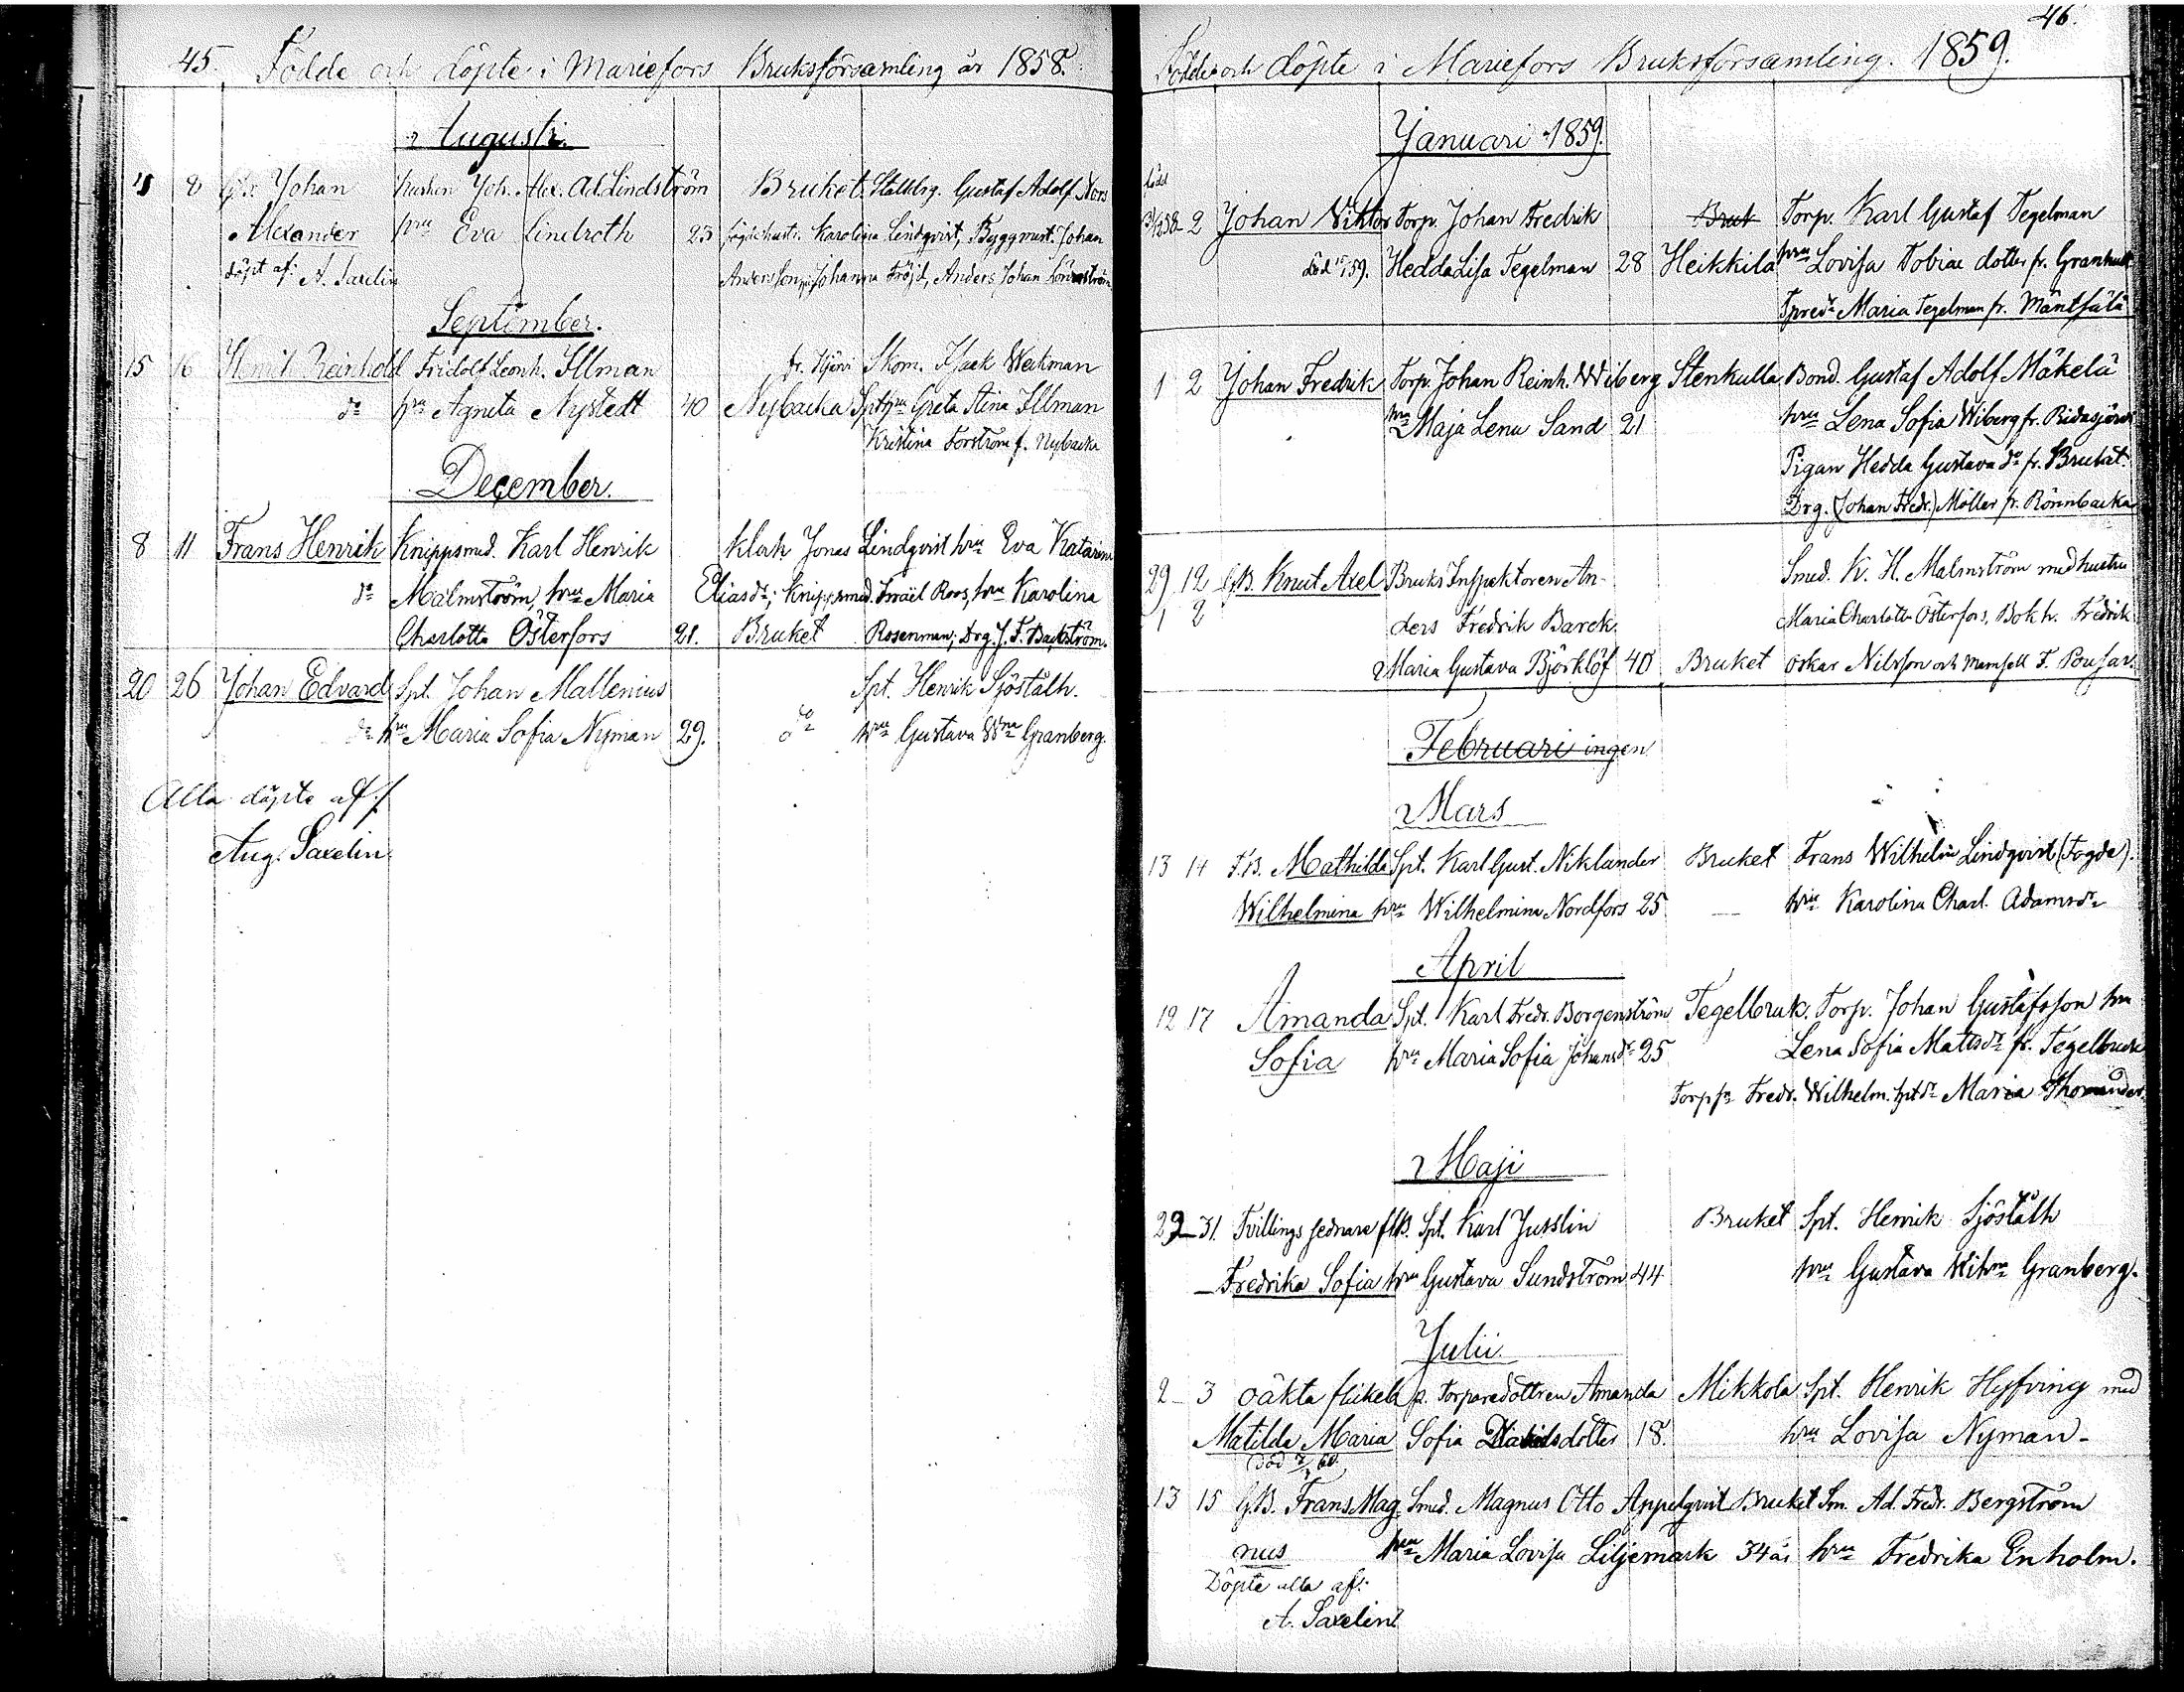 45. Födde och döpte i Mariefors Bruksförsamling år 1858.
Augusti.
8 Johan Kusken Joh. Alex. Ad. Lindström Bruket. Gustaf Adolf Nors
Alexander hru Eva Lindroth 23 Karolina Lindqvist, Byggmäst. Johan
döpt af: A. Saxelin Andersson, Johanna Fröjd, Anders Johan
September.
15 16 Henrik Reinhold Fridolf Leonh. Illman fr. Skom. Isaek Wekman
dn hru Agneta Nystedt 40 Nybacka Spthru Greta Stina Illman
Kristina Forström f. Nybacka
December.
8 11 Frans Henrik Knippsmed. Karl Henrik Klock Jonas Lindqvist hru Eva Katarina
dn Malmström, hru Maria Eliasdr; Knippsmed. Israël Roos, hru Karolina
Charlotta Österfors 21. Bruket Rosenman; Drg. J. F. Backström.
20 26 Johan Edvard Spt. Johan Mallenius Spt. Henrik Sjöstålh.
dn hru Maria Sofia Nyman 29. do hru Gustava Wna Granberg.
Alla döpte af:/
Aug. Saxelin.
46.
Födde och döpte i Mariefors Bruksförsamling. 1859.
Januari 1859.
född
31/12 58 2 Johan Viktor Torp. Johan Fredrik Bruk Torp. Karl Gustaf Tegelman
död 59. Hedda Lisa Tegelman 28 Heikkilä hru Lovisa Tobiae dotter fr. Grankulla
Maria Tegelman fr. Mäntsälä
1 2 Johan Fredrik Torp. Johan Reinh. Wiberg Stenkulla Bond. Gustaf Adolf Mäkelä
hru Maja Lena Sand 21 hru Lena Sofia Wiberg fr.
Pigan Hedda Gustava do fr. Bruket.
Drg. (Johan Fredr.) Möller fr. Rönnbacka
29 12 G.B. Knut Axel Bruks Inspektoren An- Smed. K. H. Malmström med hustru
1 2 ders Fredrik Barck. Maria Charlotta Österfors, Bokh. Fredrik
Maria Gustava Björklöf 40 Bruket Oskar Nilsson och Mamsell F. Pousar.
Februari ingen
Mars
13 14 F.B. Mathilda Spt. Karl Gust. Niklander Bruket Frans Wilhelm Lindqvist (Fogde).
Wilhelmina hru Wilhelmina Nordfors 25 — hru Karolina Charl. Adamsdr
April
12 17 Amanda Spt. Karl Fredr. Borgenström Tegelbruk. Torp. Johan Gustafsson hru
Sofia hru Maria Sofia Johansdr 25 Lena Sofia Matsdr fr. Tegelbruk
Torpsn Fredr. Wilhelm. Maria Thomander.
Maji
29–31. Tvillings sednare flB. Spt. Karl Jusslin Bruket Spt. Henrik Sjöstålh
Fredrika Sofia hru Gustava Sundström 44 hru Gustava Wihna Granberg.
Julii.
2 – 3 oäkta flickeb fr. Torparedottren Amanda Mikkola Spt. Henrik Hyfving med
Matilda Maria Sofia Davidsdotter 18. hru Lovisa Nyman -
död 60.
13 15 G.B. Frans Mag- Smed. Magnus Otto Appelqvist Bruket Sm. Ad. Fredr. Bergström
nus hru Maria Lovisa Liljemark 34 år hru Fredrika Enholm.
Döpte alla af:
A. Saxelin